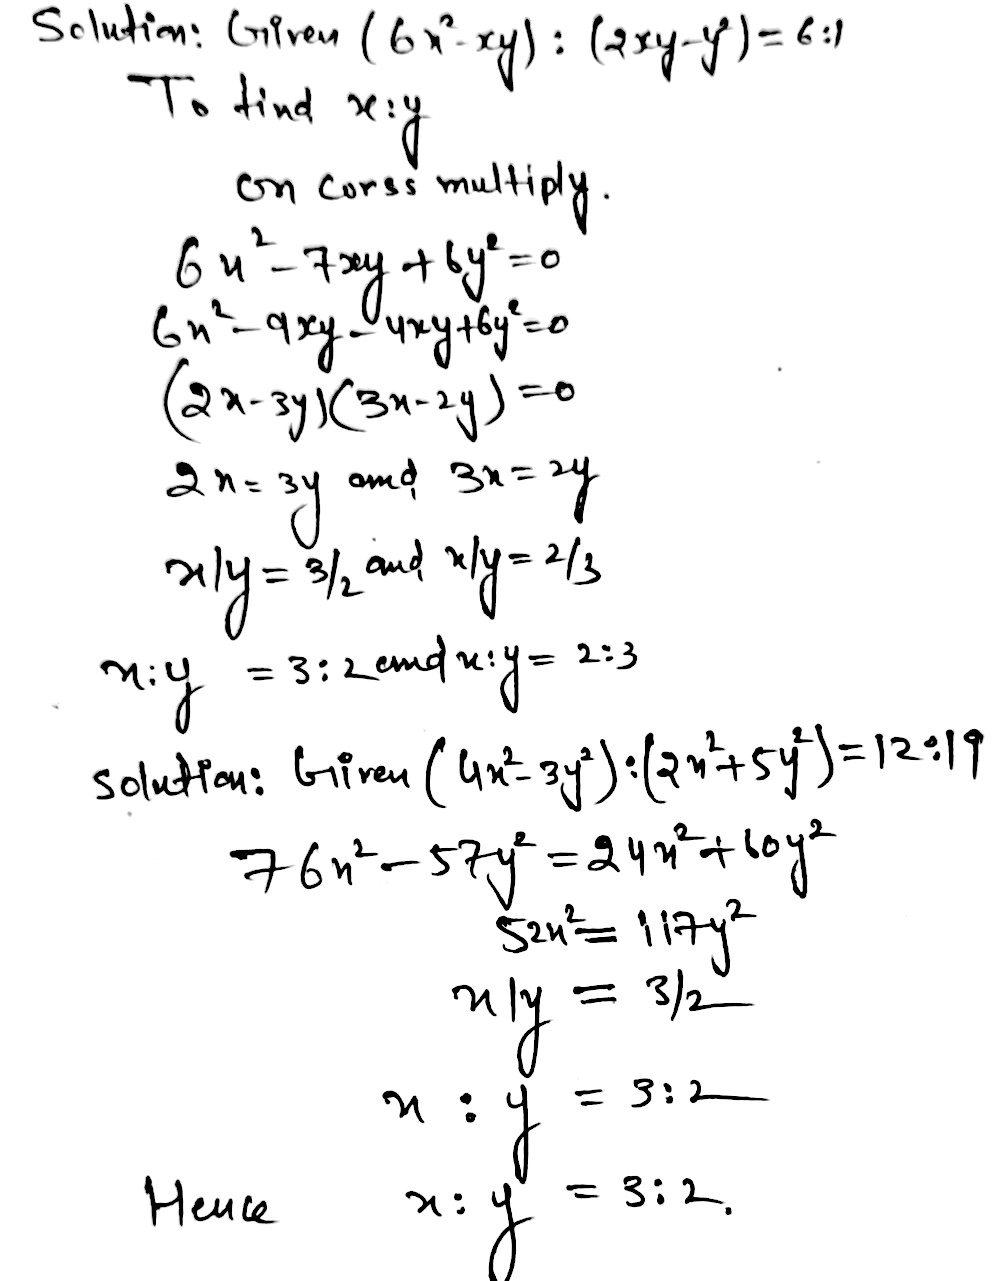 Solution: Given (6x²-xy) : (2xy-y²) = 6:1
To find x:y
on corss multiply.
6x² - 7xy + 6y² = 0
6x² - 9xy - 4xy + 6y² = 0
(2x-3y)(3x-2y) = 0
2x = 3y and 3x = 2y
x/y = 3/2 and x/y = 2/3
x:y = 3:2 and x:y = 2:3
Solution: Given (4x²-3y²):(2x²+5y²) = 12:19
76x² - 57y² = 24x² + 60y²
52x² = 117y²
x/y = 3/2
x : y = 3:2
Hence x:y = 3:2.